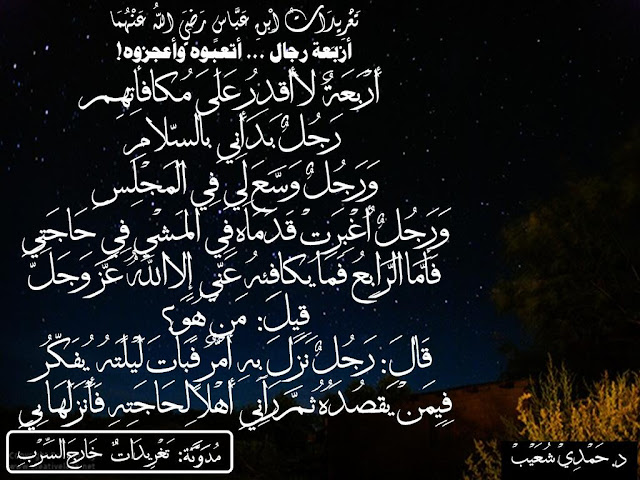 تَغْرِيدَاتُ ابْنِ عَبَّاسٍ رَضِيَ اللهُ عَنْهُمَا
أربعة رجال ... أتعبوه وأعجزوه!
أَرْبَعَةٌ لاَ أَقْدِرُ عَلَىَ مُكَافَأَتِهِم
رَجُلٌ بَدَأَنِي بِالسَّلامِ
وَرَجُلٌ وَسَّعَ لِي فِي المَجْلِسِ
وَرَجُلٌ اُغْبَرَتْ قَدَمَاه فِي المَشْيِ فِي حَاجَتِي
فَأَمَا الرَّابِعُ فَمَا يكَافِئهُ عَنِّي إِلا اللهُ عَزَّ وَجَلَّ
قِيلَ: مَن هُوَ؟
قَالَ: رَجُلٌ نَزَلَ بِهِ أَمْرٌ فَبَاتَ لَيْلَتَهُ يُفَكِّرُ
فِيمَنْ يَقصُدُهُ ثُمَّ رَآنِي أَهْلاً لِحَاجَتِهِ فَأَنْزَلَهَا بِي
مُدَوَّنَة: تَغْرِيدَاتٌ خَارِجَ السِّرْبِ
د. حَمْدِيْ شُعَيْبْ